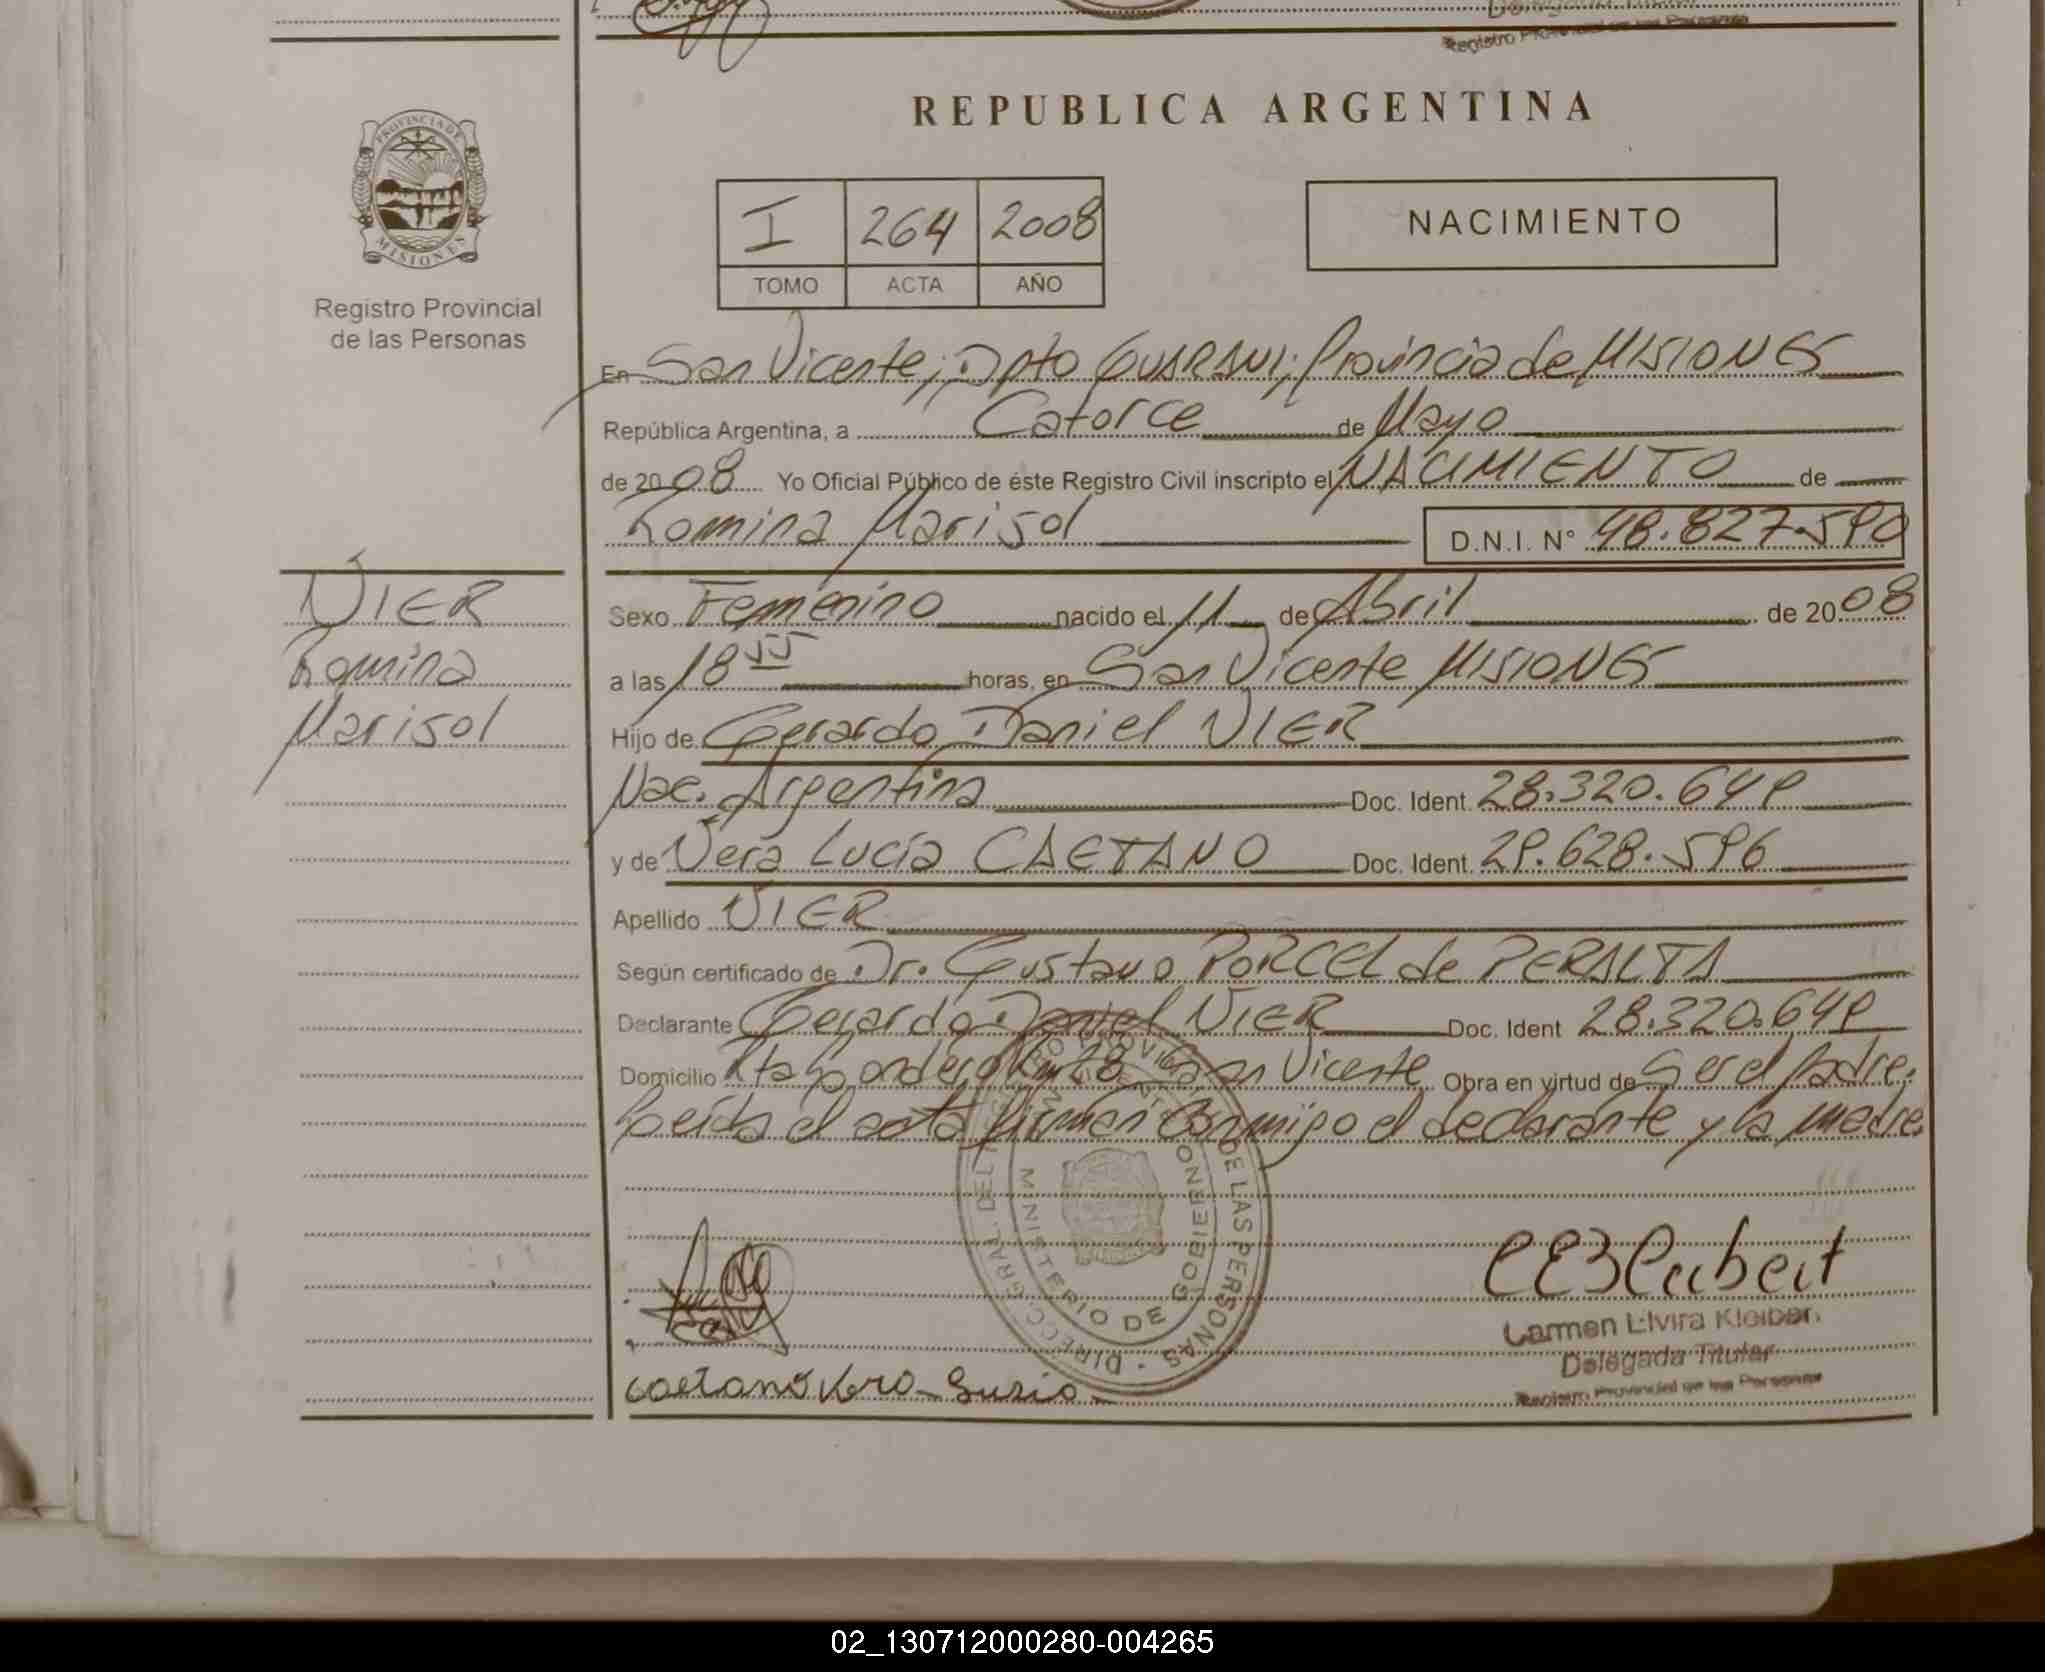 REPUBLICA ARGENTINA
PROVINCIA DE
MISIONES
Registro Provincial
de las Personas
I 264 2008
TOMO ACTA AÑO
NACIMIENTO
En San Vicente; Dpto GUARANI; Provincia de MISIONES
República Argentina, a Catorce de Mayo
de 2008 Yo Oficial Público de éste Registro Civil inscripto el NACIMIENTO de
Romina Marisol D.N.I. N° 48.827.590
VIER
Romina
Marisol
Sexo Femenino nacido el 11 de Abril de 2008
a las 18 55 horas, en San Vicente MISIONES
Hijo de Gerardo Daniel VIER
Nac. Argentina Doc. Ident. 28.320.649
y de Vera Lucía CAETANO Doc. Ident. 29.628.596
Apellido VIER
Según certificado de Dr. Gustavo PORCEL de PERALTA
Declarante Gerardo Daniel VIER Doc. Ident 28.320.649
Domicilio Km 28 San Vicente Obra en virtud de Ser el padre.
Leída el acta firman conmigo el declarante y la madre.
DE LAS PERSONAS
MINISTERIO DE GOBIERNO
Carmen Elvira Kleiber
Delegada Titular
Registro Provincial de las Personas
Caetano Vera
02_130712000280-004265